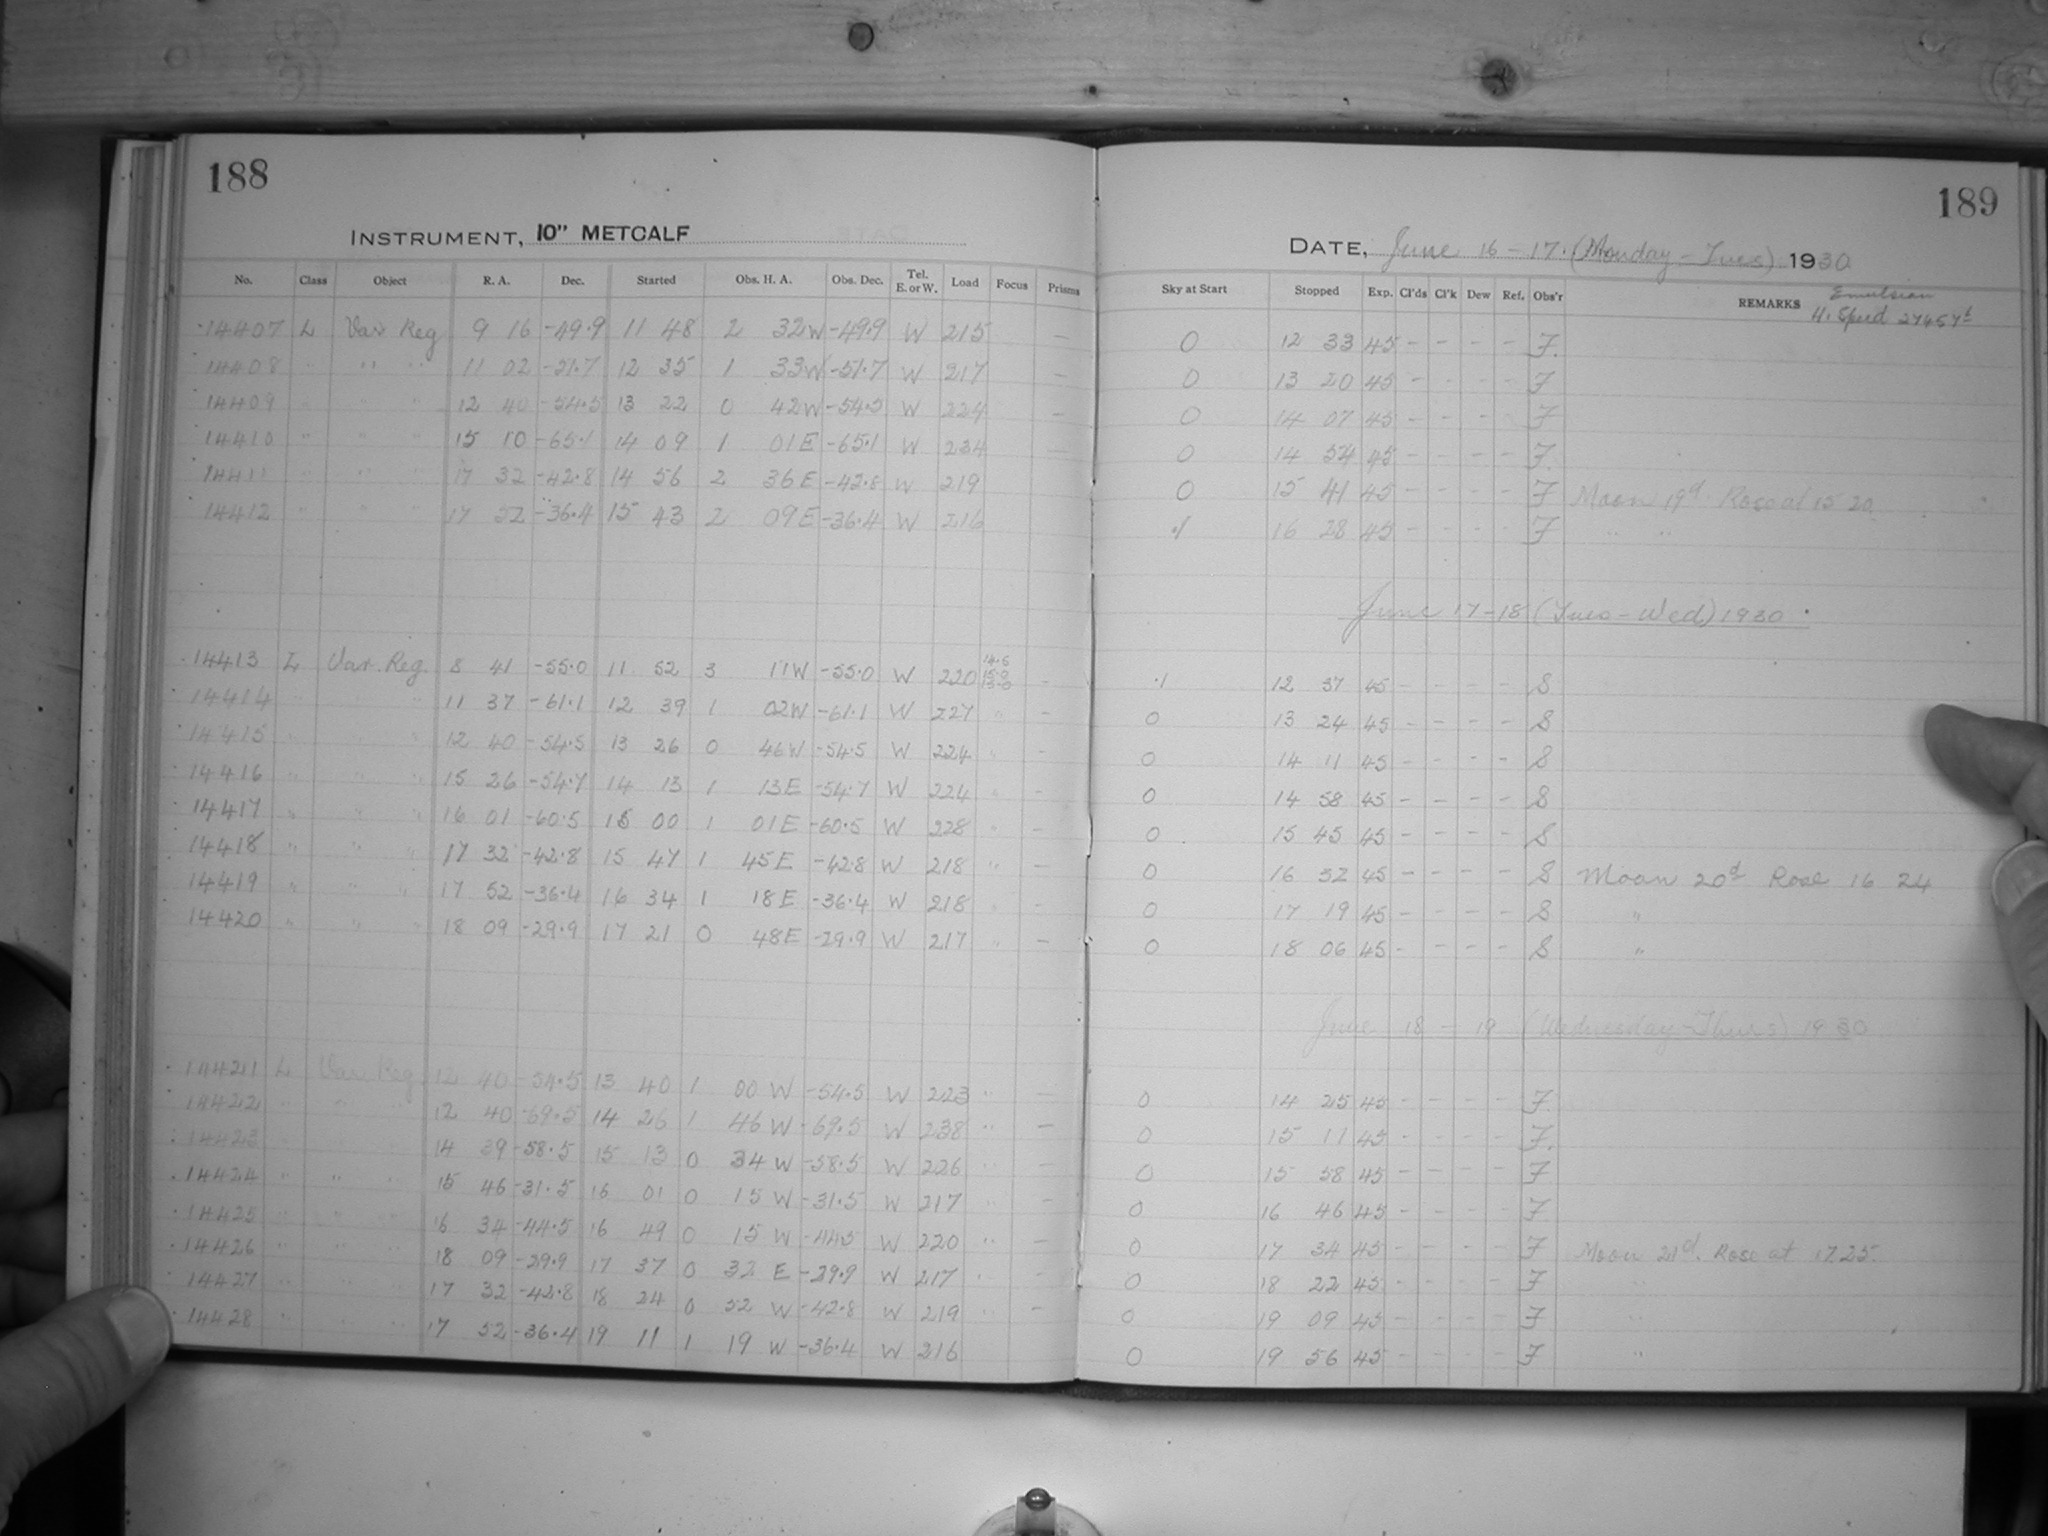 188
INSTRUMENT, 10" METCALF
No. Class Object R. A. Dec. Started Obs. H. A. Obs. Dec. Tel. E. or W. Load Focus Prisms
14407 L Var Reg 9 16 -49.9 11 48 2 32W -49.9 W 215 —
14408 " " " 11 02 -51.7 12 35 1 33W -51.7 W 217 —
14409 " " " 12 40 -54.5 13 22 0 42W -54.5 W 224 —
14410 " " " 15 10 -65.1 14 09 1 01E -65.1 W 234 —
14411 " " " 17 32 -42.8 14 56 2 36E -42.8 W 219
14412 " " " 17 52 -36.4 15 43 2 09E -36.4 W 216
14413 L Var. Reg. 8 41 -55.0 11 52 3 11W -55.0 W 220 14.5 15.0 13.0 -
14414 " " 11 37 -61.1 12 39 1 02W -61.1 W 227 " -
14415 " " " 12 40 -54.5 13 26 0 46W -54.5 W 224 " -
14416 " " " 15 26 -54.7 14 13 1 13E -54.7 W 224 " -
14417 " " " 16 01 -60.5 15 00 1 01E -60.5 W 228 " -
14418 " " " 17 32 -42.8 15 47 1 45E -42.8 W 218 " -
14419 " " " 17 52 -36.4 16 34 1 18E -36.4 W 218 " -
14420 " " " 18 09 -29.9 17 21 0 48E -29.9 W 217 " -
14421 L Var Reg 12 40 -54.5 13 40 1 00 W -54.5 W 223 " —
14422 " " " 12 40 -69.5 14 26 1 46 W -69.5 W 238 " —
14423 14 39 -58.5 15 13 0 34 W -58.5 W 226 " —
14424 " " " 15 46 -31.5 16 01 0 15 W -31.5 W 217 " —
14425 " " " 16 34 -44.5 16 49 0 15 W -44.5 W 220 " —
14426 " " " 18 09 -29.9 17 37 0 32 E -29.9 W 217 " —
14427 " " " 17 32 -42.8 18 24 0 52 W -42.8 W 219 " —
14428 " " " 17 52 -36.4 19 11 1 19 W -36.4 W 216
189
DATE, June 16-17. (Monday-Tues) 1930
Sky at Start Stopped Exp. Cl'ds Cl'k Dew Ref. Obs'r REMARKS Emulsion
H. Speed
0 12 33 45 - - - - F.
0 13 20 45 - - - - F
0 14 07 45 - - - - F
0 14 54 45 - - - - F.
0 15 41 45 - - - - F Moon 19d. Rose at 15 20
.1 16 28 45 - - - - F " "
June 17-18 (Tues-Wed) 1930.
.1 12 37 45 - - - - S
0 13 24 45 - - - - S
0 14 11 45 - - - - S
0 14 58 45 - - - - S
0 15 45 45 - - - - S
0 16 32 45 - - - - S Moon 20d Rose 16 24
0 17 19 45 - - - - S "
0 18 06 45 - - - - S "
June 18 - 19 (Wednesday-Thurs) 1930
0 14 25 45 - - - - F.
0 15 11 45 - - - - F.
0 15 58 45 - - - - F
0 16 46 45 - - - - F
0 17 34 45 - - - - F Moon 21d. Rose at 17.25.
0 18 22 45 - - - - F "
0 19 09 45 - - - - F "
0 19 56 45 - - - - F "